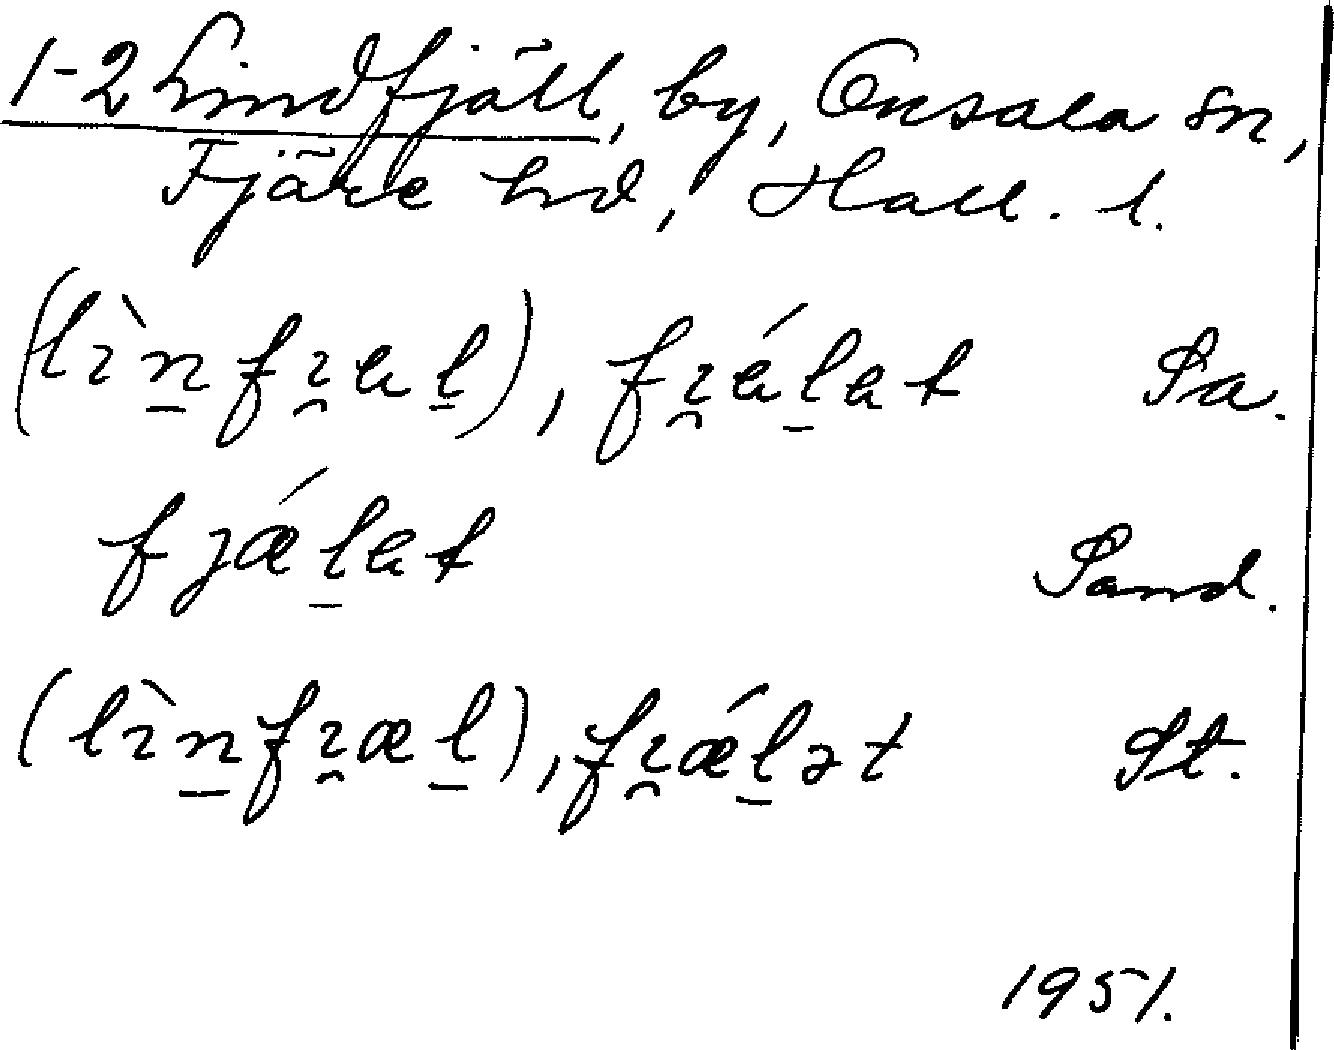 1-2 Lindfjäll, by, Onsala sn,
Fjäre hd, Hall. l.
(lìn̲fı̯al̲), fı̯ál̲at Sa.
fjǽl̲at Sand.
(lìn̲fı̯æl̲), fı̯ǽl̲ət St.
1951.